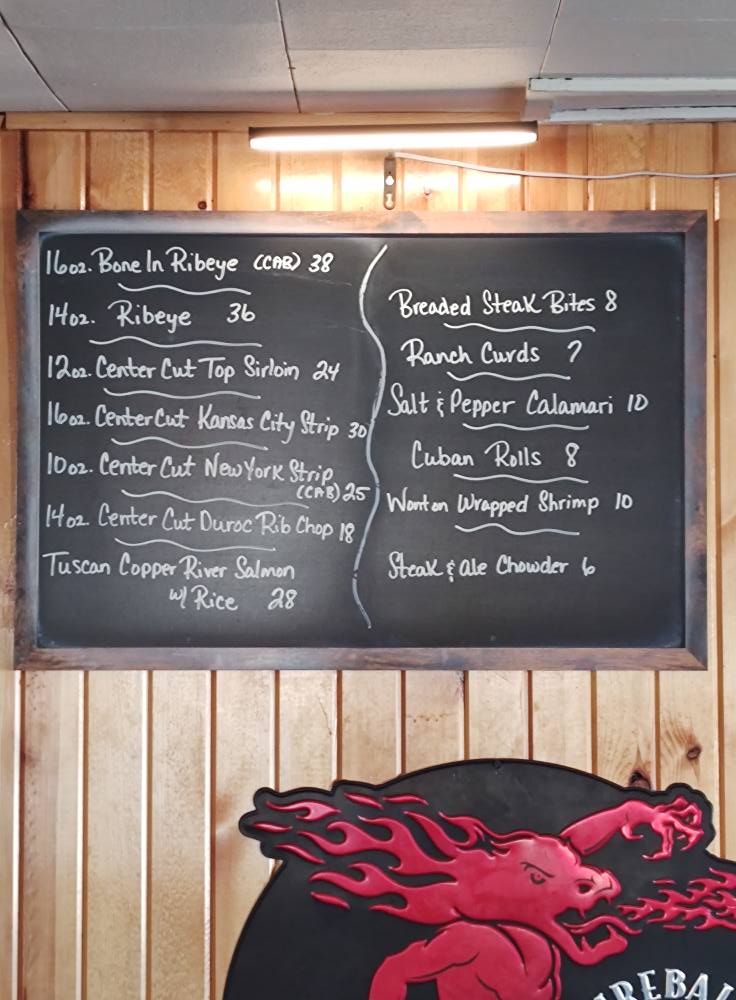 16oz. Bone In Ribeye (CAB) 38
14oz. Ribeye 36
12oz. Center Cut Top Sirloin 24
16oz. Center Cut Kansas City Strip 30
10oz. Center Cut New York Strip
(CAB) 25
14oz. Center Cut Duroc Rib Chop 18
Tuscan Copper River Salmon
w/ Rice 28
Breaded Steak Bites 8
Ranch Curds 7
Salt & Pepper Calamari 10
Cuban Rolls 8
Wonton Wrapped Shrimp 10
Steak & Ale Chowder 6
REBAL